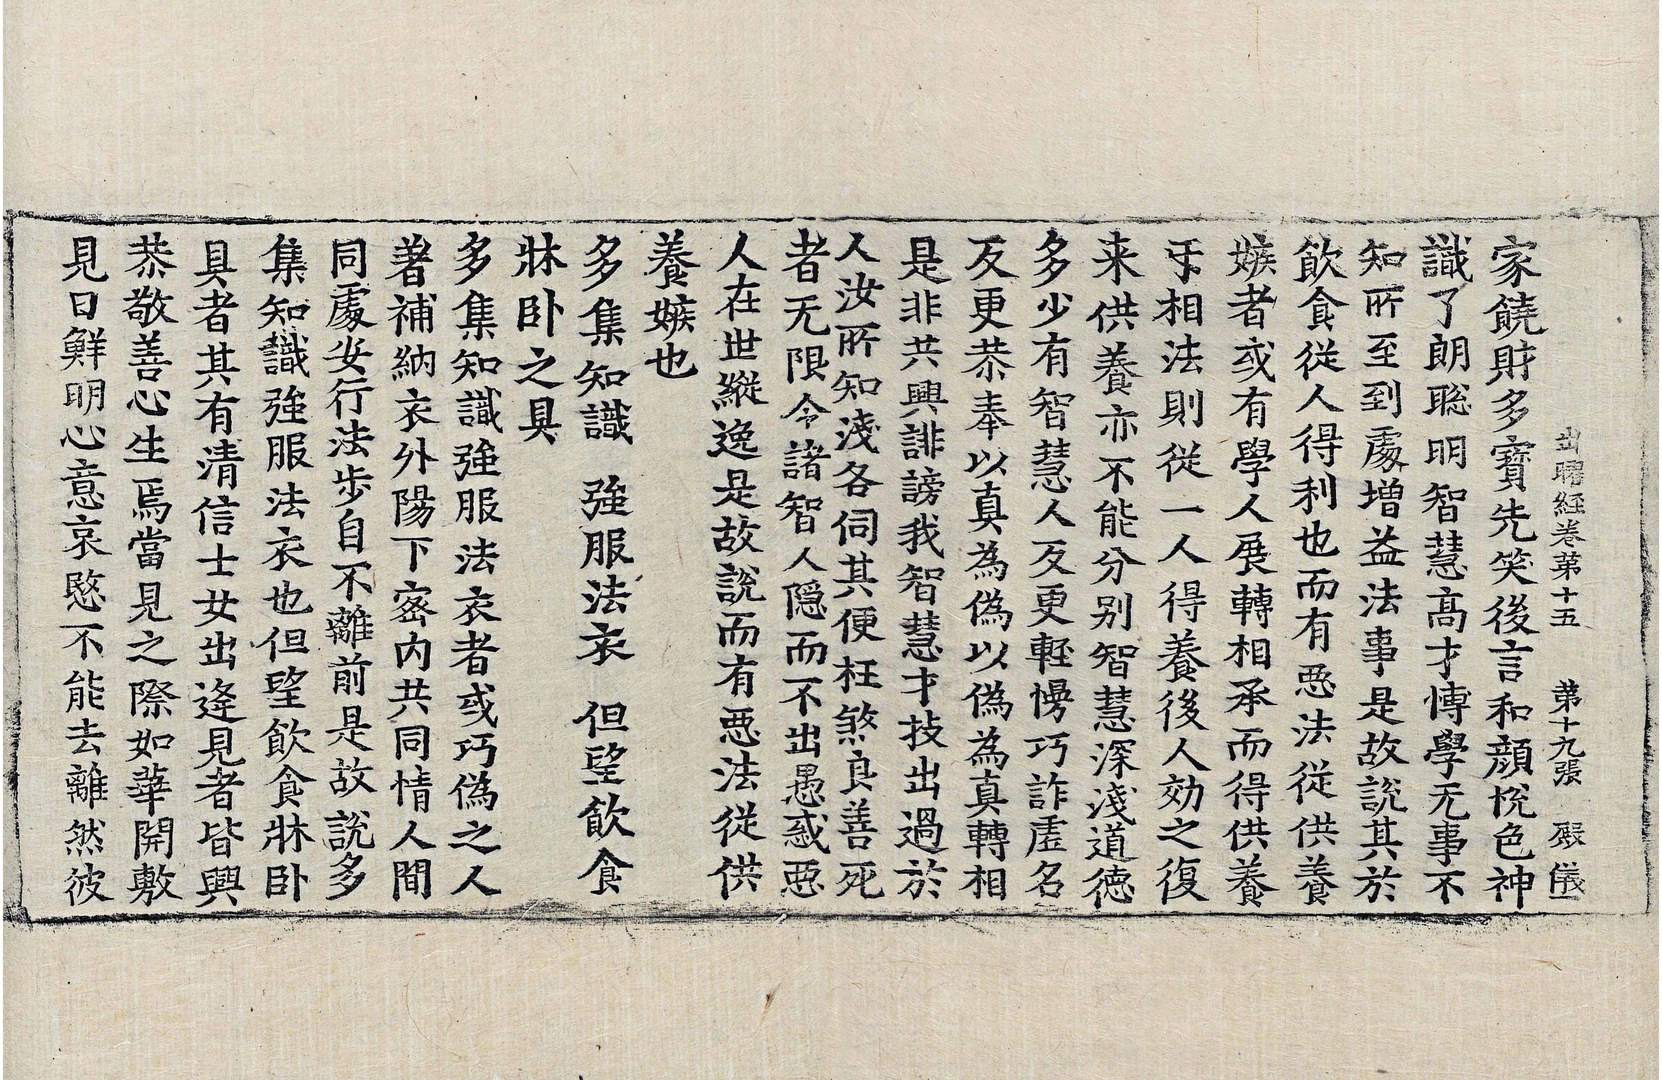 出曜経卷第十五 第十九張 殿 儀
家饒財多寶先笑後言和顔悅色神
識了朗聡明智慧高才愽學无事不
知所至到處增益法事是故説其於
飲食従人得利也而有悪法従供養
嫉者或有學人展轉相承而得供養
手相法則従一人得養後人効之復
来供養亦不能分别智慧深淺道德
多少有智慧人反更輕慢巧詐虛名
反更恭奉以真為偽以偽為真轉相
是非共興誹謗我智慧才技出過於
人汝所知淺各伺其便枉煞良善死
者无限令諸智人隠而不出愚惑悪
人在世縱逸是故説而有悪法従供
養嫉也
多集知識 強服法衣 但望飲食
牀卧之具
多集知識強服法衣者或巧偽之人
著補納衣外陽下密内共同情人間
同處安行法步自不離前是故説多
集知識強服法衣也但望飲食牀卧
具者其有清信士女出逢見者皆興
恭敬善心生焉當見之際如華開敷
見日鮮明心意哀愍不能去離然彼